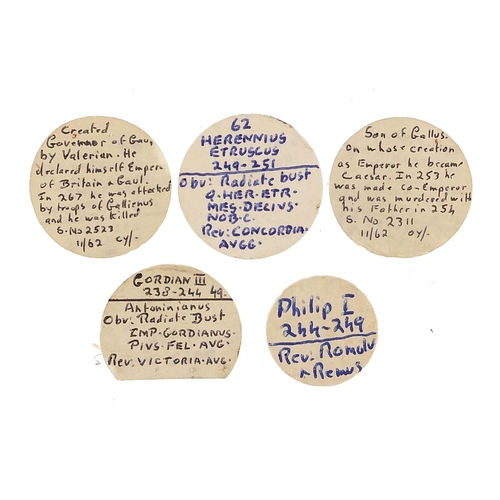 Created
Governor of Gaul
by Valerian. He
declared himself Emperor
of Britain & Gaul.
In 267 he was attacked
by troops of Gallienus
and he was killed
S. No 2523
11/62 cy/-
62
HERENNIUS
ETRUSCUS
249-251
Obv: Radiate bust
Q. HER. ETR.
MES. DECIUS.
NOB. C.
Rev: CONCORDIA.
AVGG.
Son of Gallus.
On whose creation
as Emperor he became
Caesar. In 253 he
was made co-Emperor
and was murdered with
his Father in 254
S. No 2311
11/62 oy/-
GORDIAN III
238-244 49.
Antoninianus
Obv: Radiate Bust
IMP. GORDIANUS.
PIVS. FEL. AVG.
Rev: VICTORIA. AVG.
Philip I
244-249
Rev: Romulu
& Remus